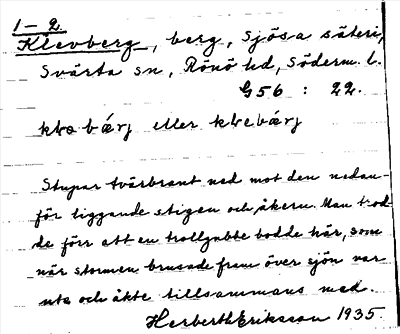 1-2
Klevberg, berg, Sjösa säteri,
Svärta sn, Rönö hd, Söderm. l.
G56 : 22.
eller
Stupar tvärbrant ned mot den nedan-
för liggande stigen och åkern. Man trod-
de förr att en trollgubbe bodde här, som
när stormen brusade fram över sjön var
ute och åkte tillsammans med.
Herbert Eriksson 1935.